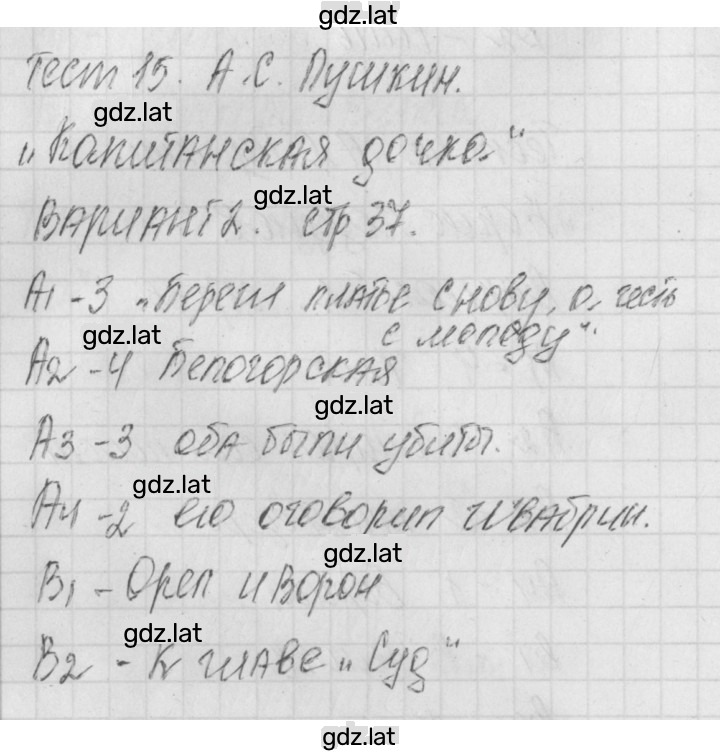 gdz.lat
Тест 15. А.С. Пушкин.
gdz.lat
„Капитанская дочка."
gdz.lat
Вариант 2. стр 37.
А1 - 3 „Береги платье снову, а честь
gdz.lat
с молоду".
А2 - 4 Белогорская
gdz.lat
А3 - 3 оба были убиты.
gdz.lat
А4 - 2 его оговорил Швабрин.
gdz.lat
В1 - Орел и Ворон
gdz.lat
В2 - К главе „Суд"
gdz.lat